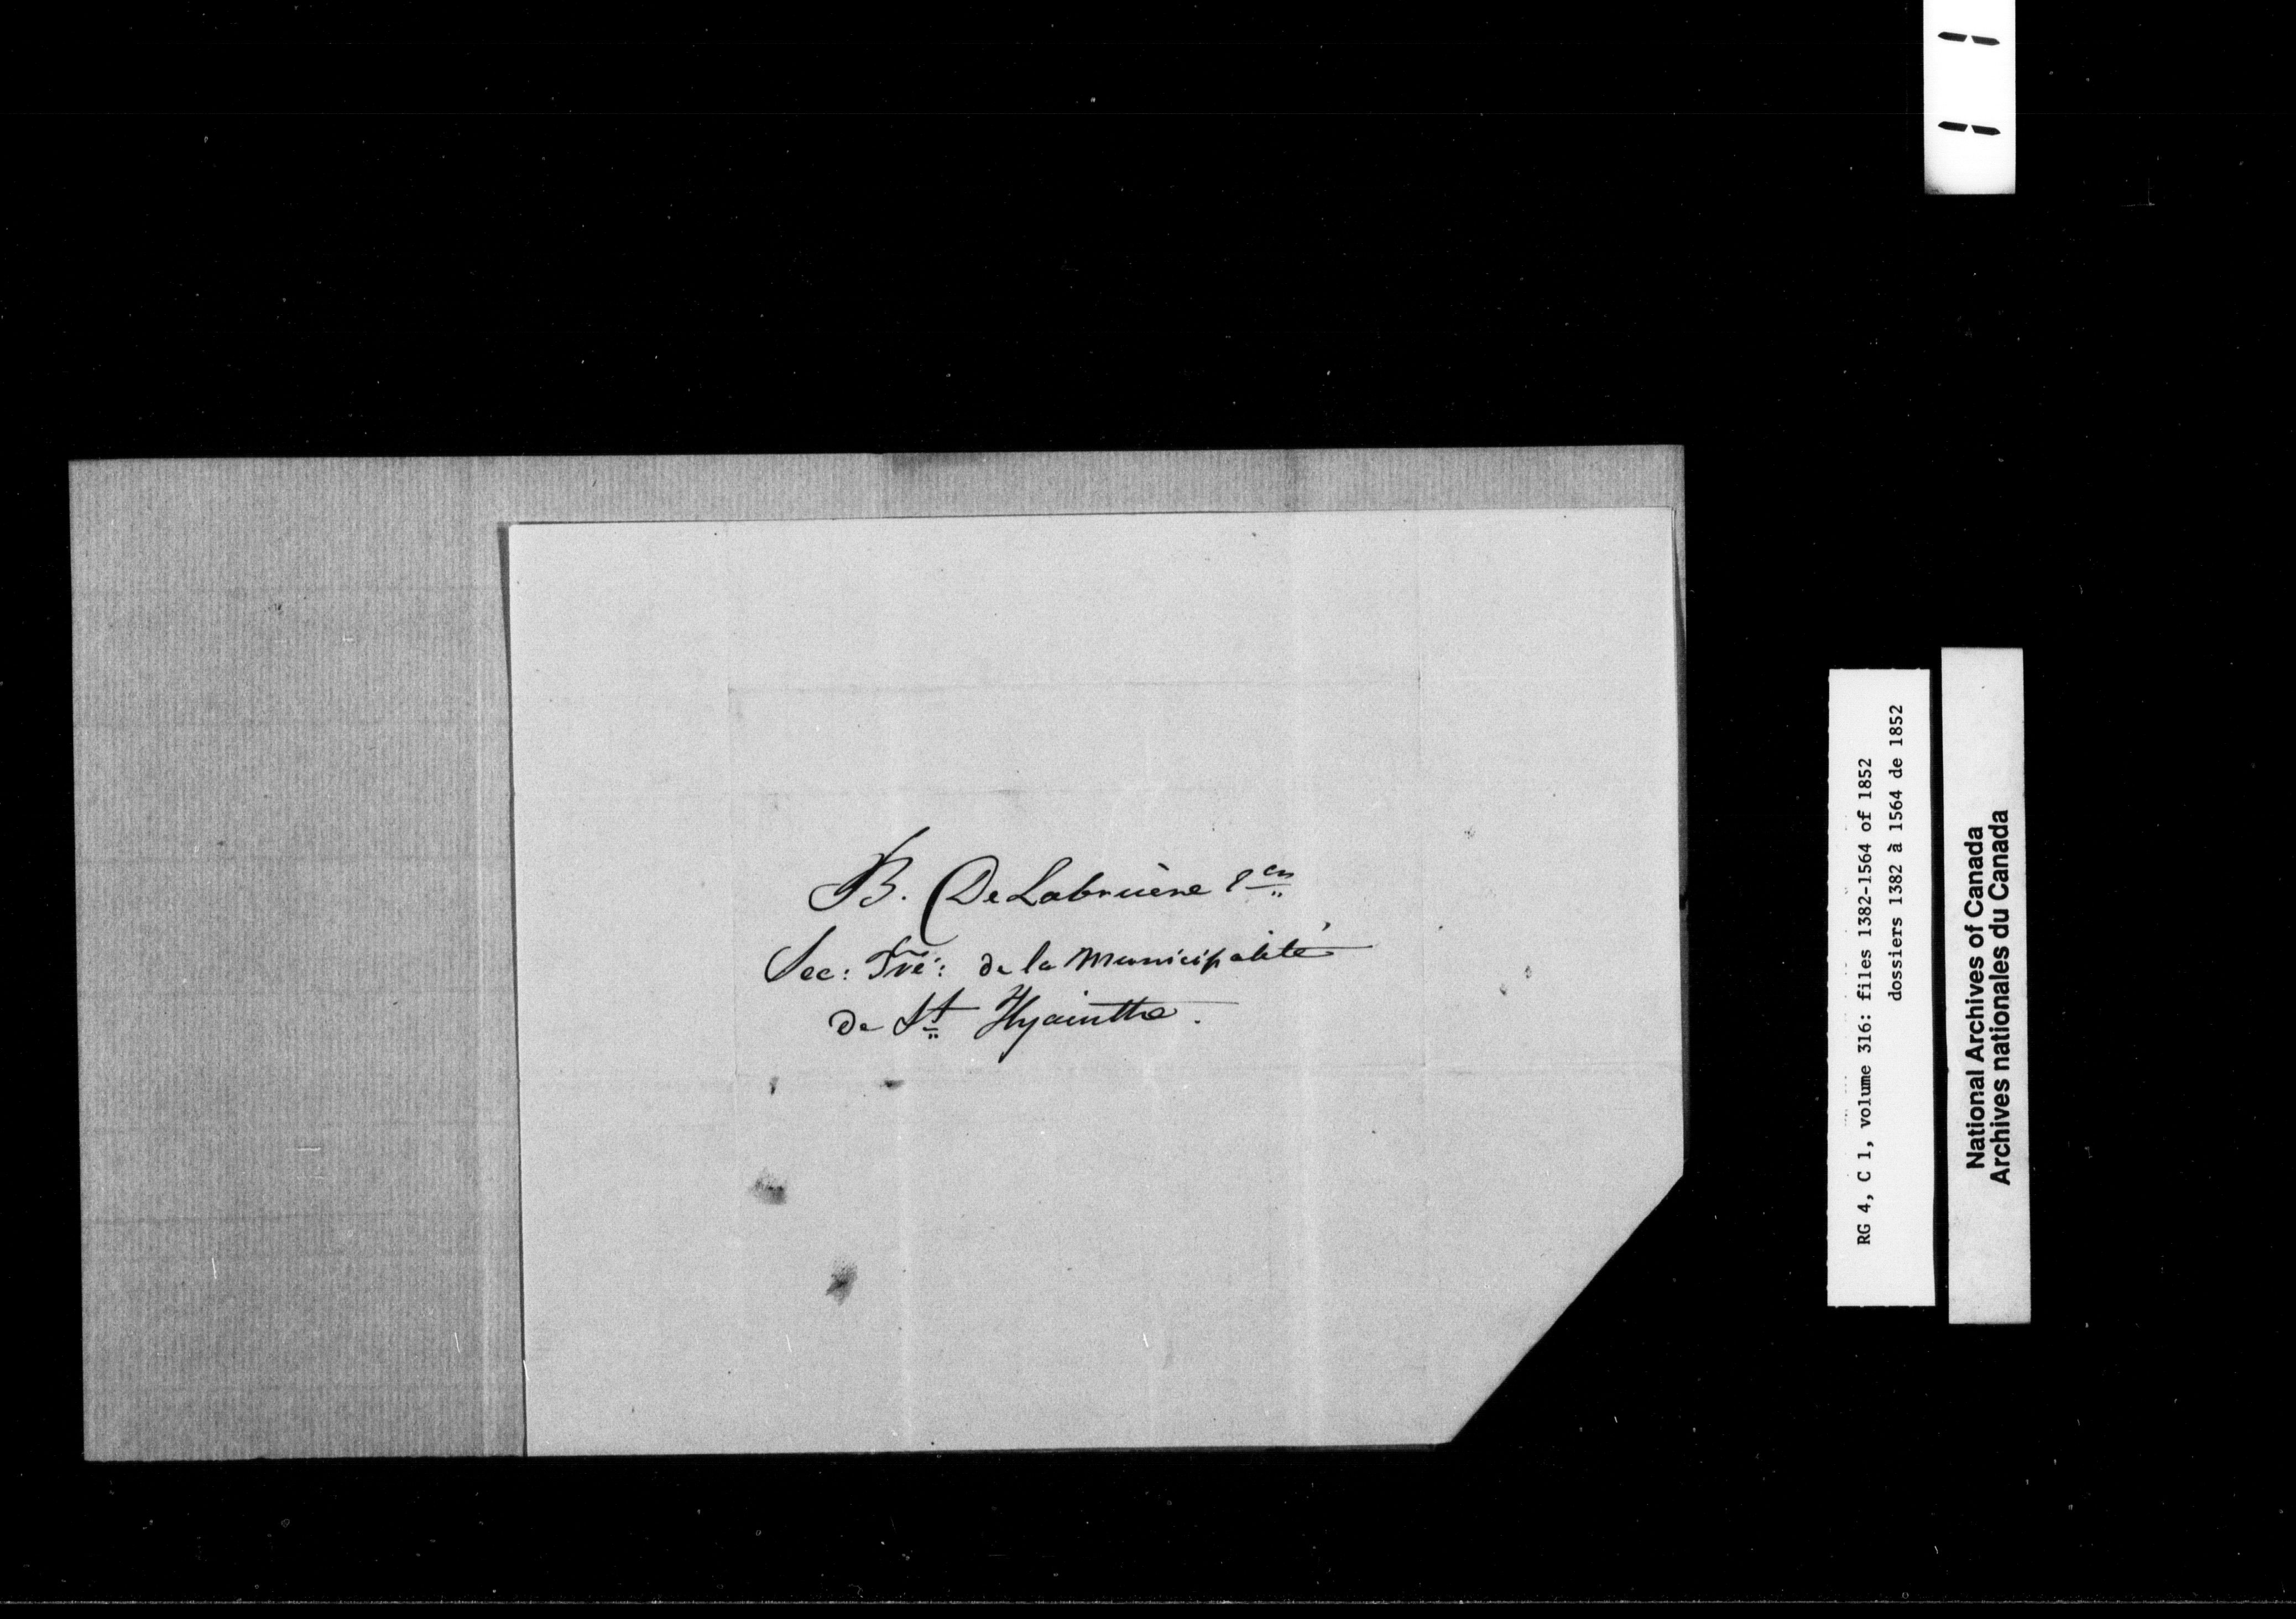 B. De Labruère Ecr
Sec: Tré: de la Municipalité
de St Hyacinthe.
RG 4, C 1, volume 316: files 1382-1564 of 1852
dossiers 1382 à 1564 de 1852
National Archives of Canada
Archives nationales du Canada